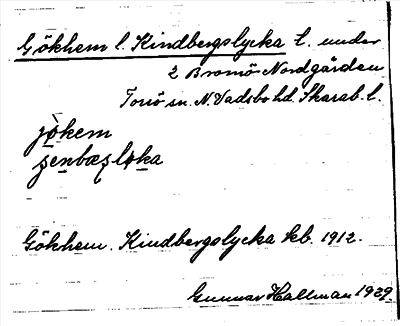 Gökhem l. Kindbergslycka t. under
2 Bromö Nordgården
Torsö sn. N. Vadsbo hd. Skarab. l.
jøkem
ʂenbæʂløka
Gökhem. Kindbergslycka kb. 1912.
Gunnar Hallman 1929.